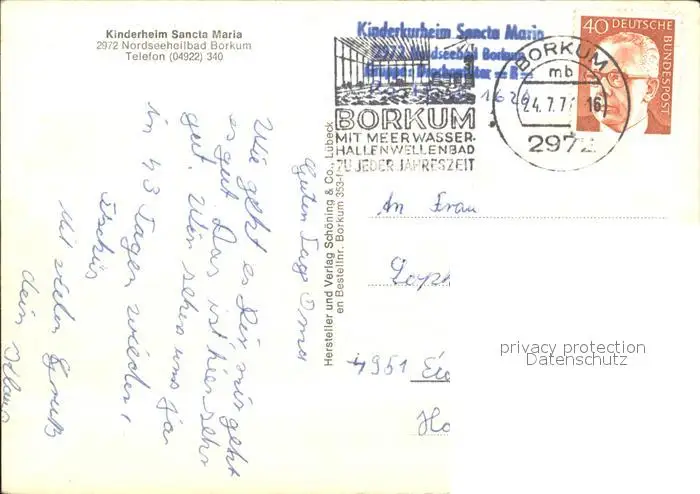 Kinderheim Sancta Maria
2972 Nordseeheilbad Borkum
Telefon (04922) 340
Kinderkurheim Sancta Maria
2972 Nordseebad Borkum
BORKUM
MIT MEERWASSER-
HALLENWELLENBAD
ZU JEDER JAHRESZEIT
BORKUM
mb
24.7.7
16
2972
40 DEUTSCHE
BUNDESPOST
Hersteller und Verlag Schöning & Co., Lübeck
en Bestellnr. Borkum 353-f
Guten Tag Oma
Wie geht es Dir mir geht
es gut Das ist hier sehr
gut. Wir sehen uns ja
in 43 Tagen wieder,
Tschüs
Mit vielen Gruß
dein Klaus
An Frau
Soph
4951
Ho
privacy protection
Datenschutz